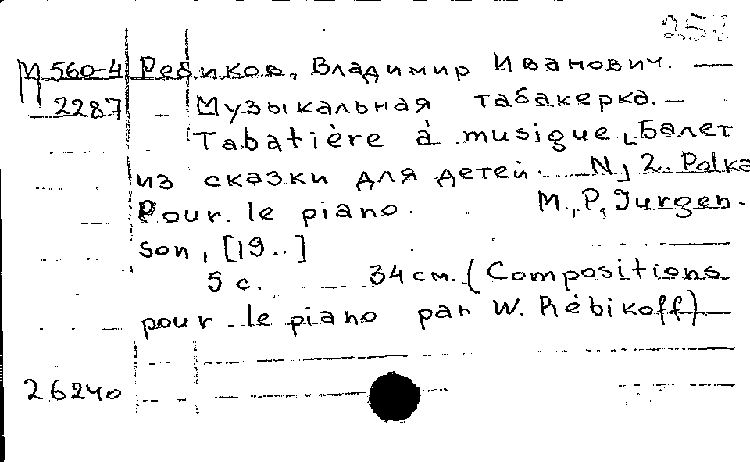 253
М 560-4 Ребиков, Владимир Иванович. —
2287 Музыкальная табакерка. —
Tabatière à musique, Балет
из сказки для детей. N, 2. Polka
Pour le piano. М., P, Jurgen-
son, [19..]
5 с. 34 см. (Compositions
pour le piano par W. Rébikoff)
26240